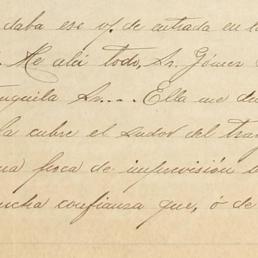 daba ese vj. de entrada en la
. He ahí todo, Sr. Gómez
Sr.... Ella me de
la cubre el sudor del tra
na poca de imprevisión
ucha confianza que, ó de